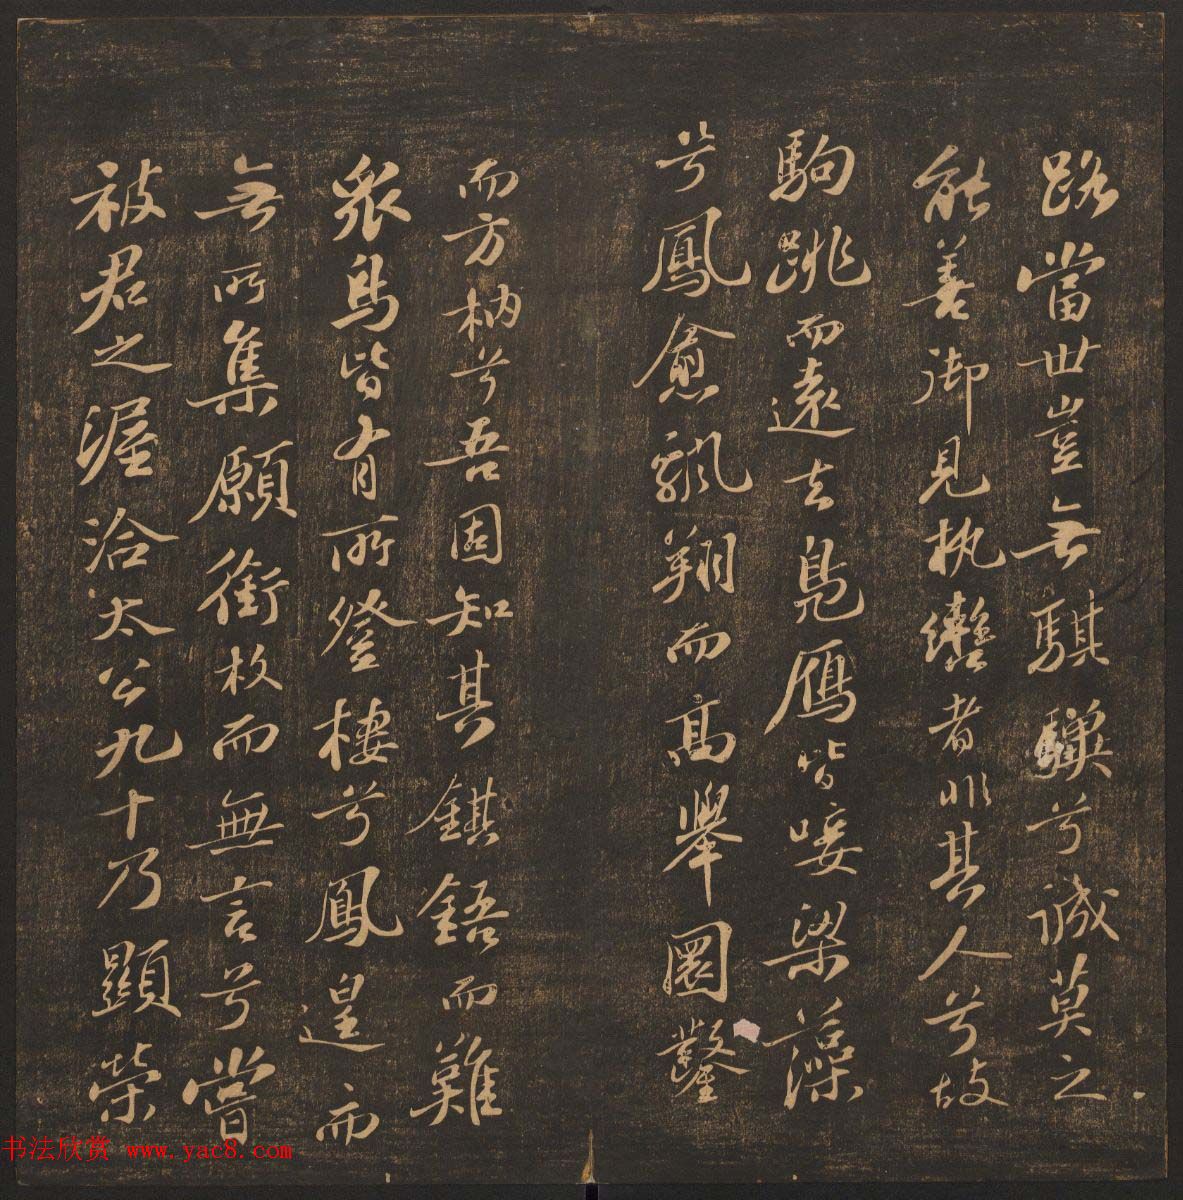 路當世豈無騏驥兮誠莫之
能善御見執轡者非其人兮故
駒跳而遠去鳧鴈皆唼梁藻
兮鳳愈飄翔而高舉圜鑿
而方枘兮吾固知其鉏鋙而難
眾鳥皆有所登棲兮鳳遑而
無所集願銜枚而無言兮嘗
被君之渥洽太公九十乃顯榮
书法欣赏 www.yac8.com